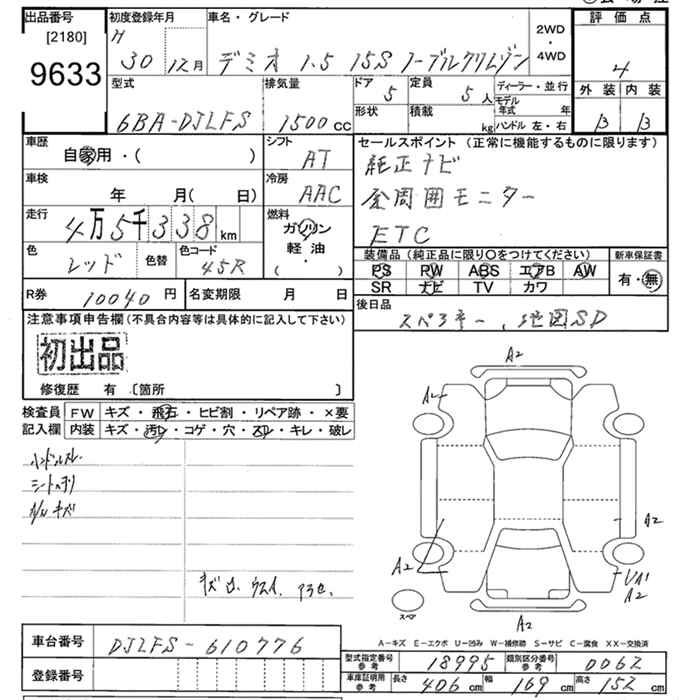 出品番号
[2180]
9633
初度登録年月
H 30 12月
車名・グレード
デミオ 1.5 15S ノーブルクリムゾン
2WD
・
4WD
評価点
4
外装 内装
B B
型式
6BA-DJLFS
排気量
1500cc
ドア
5
形状
定員
5人
積載
kg
ディーラー・並行
モデル年式 年
ハンドル 左・右
車歴
自家用・( )
シフト
AT
車検
年 月( 日)
冷房
AAC
走行
4万5千338km
燃料
ガソリン
軽油
・
( )
色
レッド
色替
色コード
45R
R券 10040円
名変期限 月 日
セールスポイント (正常に機能するものに限ります)
純正ナビ
全周囲モニター
ETC
装備品 (純正品に限り○をつけてください)
PS PW ABS エアB AW
SR ナビ TV カワ
新車保証書
有・無
後日品
スペアキー、地図SD
注意事項申告欄(不具合内容等は具体的に記入して下さい)
初出品
修復歴 有・〔箇所 〕
検査員
記入欄
FW キズ・飛石・ヒビ割・リペア跡・×要
内装 キズ・汚レ・コゲ・穴・スレ・キレ・破レ
ハンドルスレ
A2
A2
A2
A2
A2
A2
スペア
A-キズ E-エクボ U-凹み W-補修跡 S-サビ C-腐食 XX-交換済
車台番号
DJLFS-610776
登録番号
型式指定番号
参考
18995
類別区分番号
参考
0062
車庫証明用
参考
長さ 406cm 幅 169cm 高さ 152cm